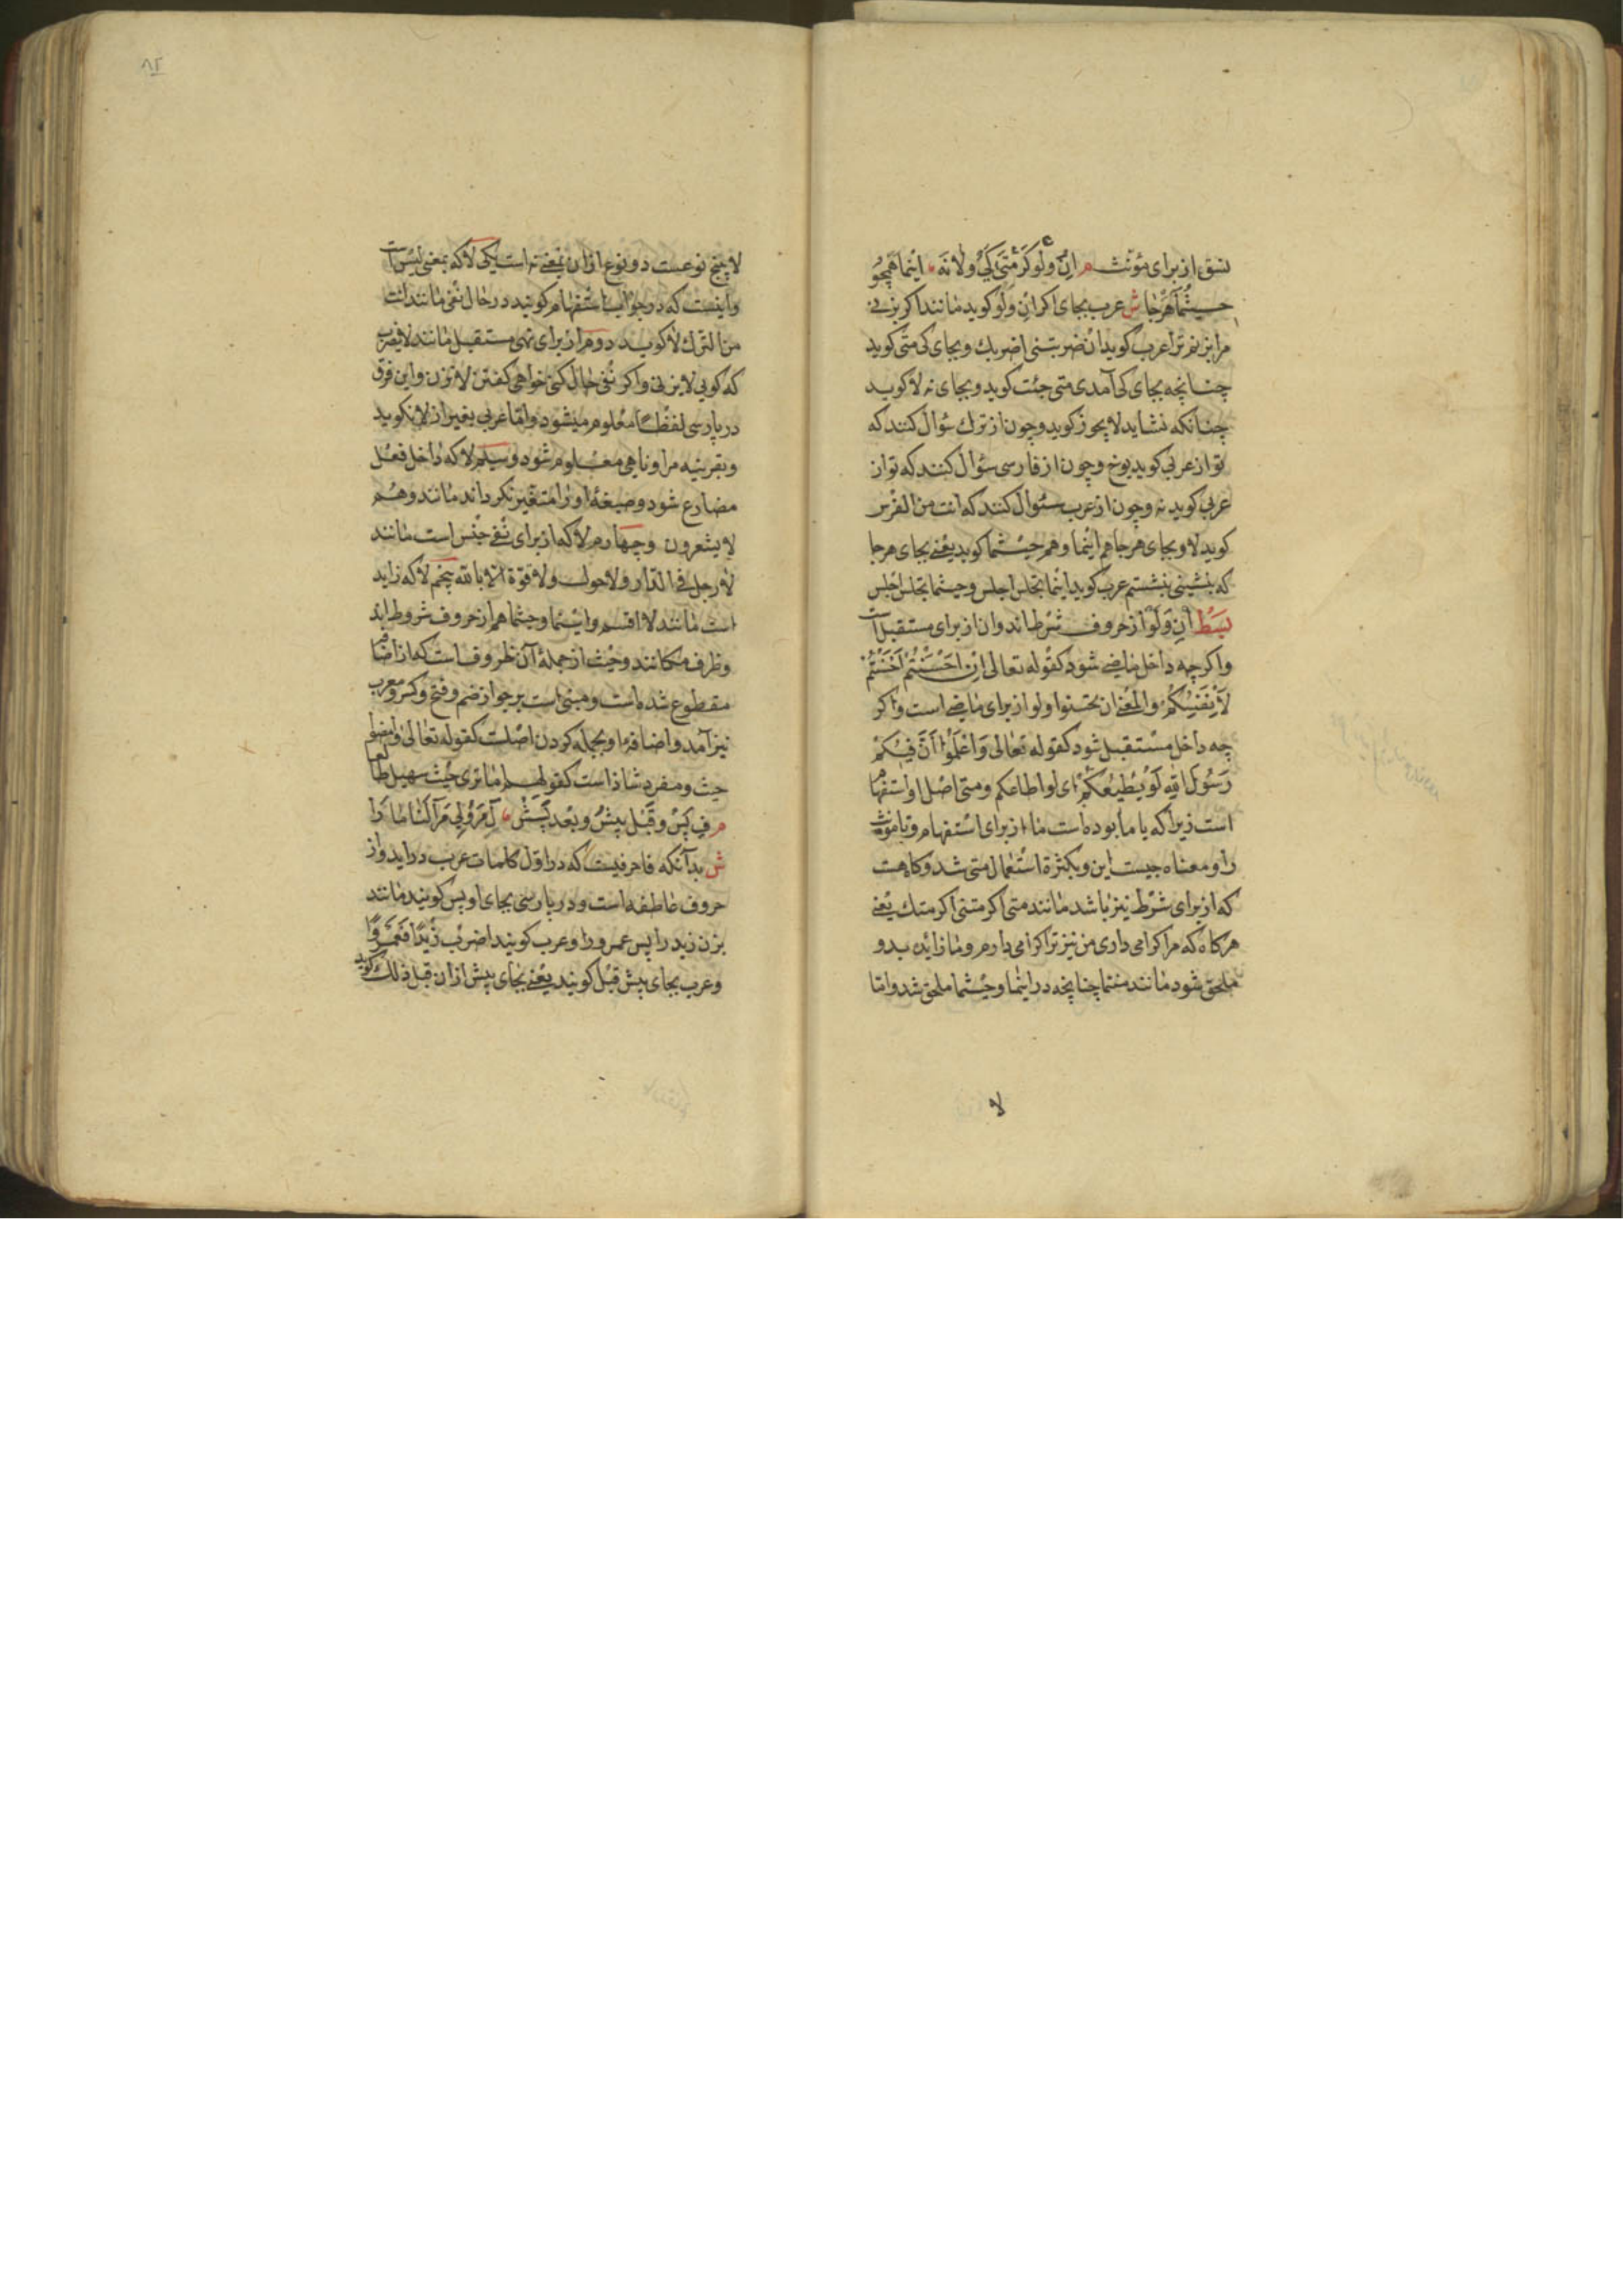 نسق از برای مؤنث م ان ولو كر متى كى ولا نه ، اينما همچو
حيثما هرجا ش عرب بجای اكر ان ولو كويد مانند اكر بزنی
مرا بزنم ترا عرب كويد ان ضربتنی اضربك وبجای كی متی كويد
چنانچه بجای كی آمدی متی جئت كويد وبجای نه لا كويد
چنانكه نشايد لا يجوز كويد وچون از ترك سؤال كنند كه
تو از عربی كويد يوخ وچون از فارسی سؤال كنند كه تو از
عربی كويد نه وچون از عرب سئوال كنند كه انت من الفرس
كويد لا وبجای هرجا هم اينما وهم حيثما كويد يعنی بجای هرجا
كه بنشينی بنشستم عرب كويد اينما تجلس اجلس وحيثما تجلس اجلس
بسط ان ولو از حروف شرط اند وان از برای مستقبل است
واكرچه داخل ماضی شود كقوله تعالی ان احسنتم احسنتم
لانفسكم والمعنی ان تحسنوا ولو از برای ماضی است واكر
چه داخل مستقبل شود كقوله تعالی واعلموا ان فيكم
رسول الله لو يطيعكم ای لو اطاعكم ومتی اصل او استفهام
است زيرا كه يا ما بوده است ما از برای استفهام ويا مؤنث
را ومعناه چيست اين وبكثرة استعمال متی شد وكاه هست
كه از برای شرط نيز باشد مانند متی اكرمتنی اكرمتك يعنی
هركاه كه مرا كرامی داری من نيز ترا كرامی دارم وما زايده بدو
ملحق شود مانند متما چنانچه در اينما وحيثما ملحق شد واما
لا
۸۲
لا پنج نوعست دو نوع از ان بمعنی نه است يكی لا كه بمعنی ليس است
واينست كه در جواب استفهام كويند در حال نفی مانند انت
من الترك لا كويد دوم از برای نهی مستقبل مانند لا تضرب
كه كويی لا بزنی واكر نفی حال كنی خواهی كفتن لا تزن واين فرق
در پارسی لفظا معلوم ميشود واما عربی بغير از لا نكويد
وبقرينه مر او ناهی معلوم شود وسيم لا كه داخل فعل
مضارع شود وصيغۀ او را متغير نكرداند مانند وهم
لا يشعرون وچهارم لا كه از برای نفی جنس است مانند
لا رجل فی الدار ولا حول ولا قوة الا بالله پنجم لا كه زايد
است مانند لا اقسم واينما وحيثما هم از حروف شروط اند
وظرف مكانند وحيث از جملۀ آن ظروف است كه از اضافه
مقطوع شده است ومبنی است بر جواز ضم وفتح وكسر ومعرب
نيز آمد واضافۀ او بجمله كردن اصلست كقوله تعالی وامضوا
حيث ومفرد شاذ است كقولهم اما تری حيث سهيل طالعا
م ف پس وقبل پيش وبعد پسش ، ل مر ولی مرا لنا ما را
ش بدانكه فا حرفيست كه در اول كلمات عرب درايد واز
حروف عاطفه است ودر پارسی بجای او پس كويند مانند
بزن زيد را پس عمرو را وعرب كويند اضرب زيدا فعمروا
وعرب بجای پيش قبل كويند يعنی بجای پيش از ان قبل ذلك كويد